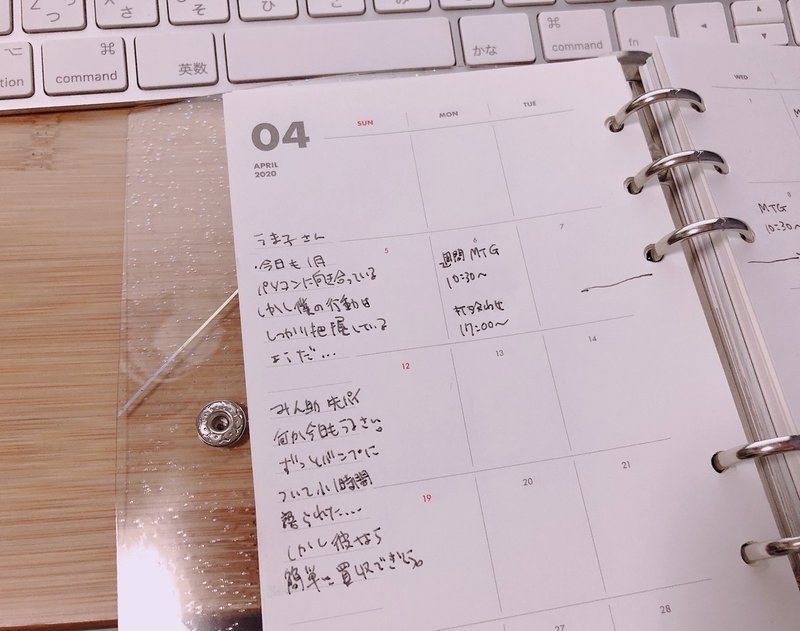 つ
さ
そ
ひ
こ
み
も
option
⌘
command
英数
かな
⌘
command
fn
04
APRIL
2020
SUN
MON
TUE
うま子さん
・今日も1月
パソコンに向き合っている
しかし僕の行動は
しっかり把握している
ようだ…
5
6
週間MTG
10:30〜
打ち合わせ
17:00〜
7
12
13
14
みん助先パイ
何か今日もうるさい。
ずっとバンプに
ついて小1時間
語られた…
しかし彼なら
簡単に買収できそう。
19
20
21
27
28
WED
1
8
MTG
10:30〜